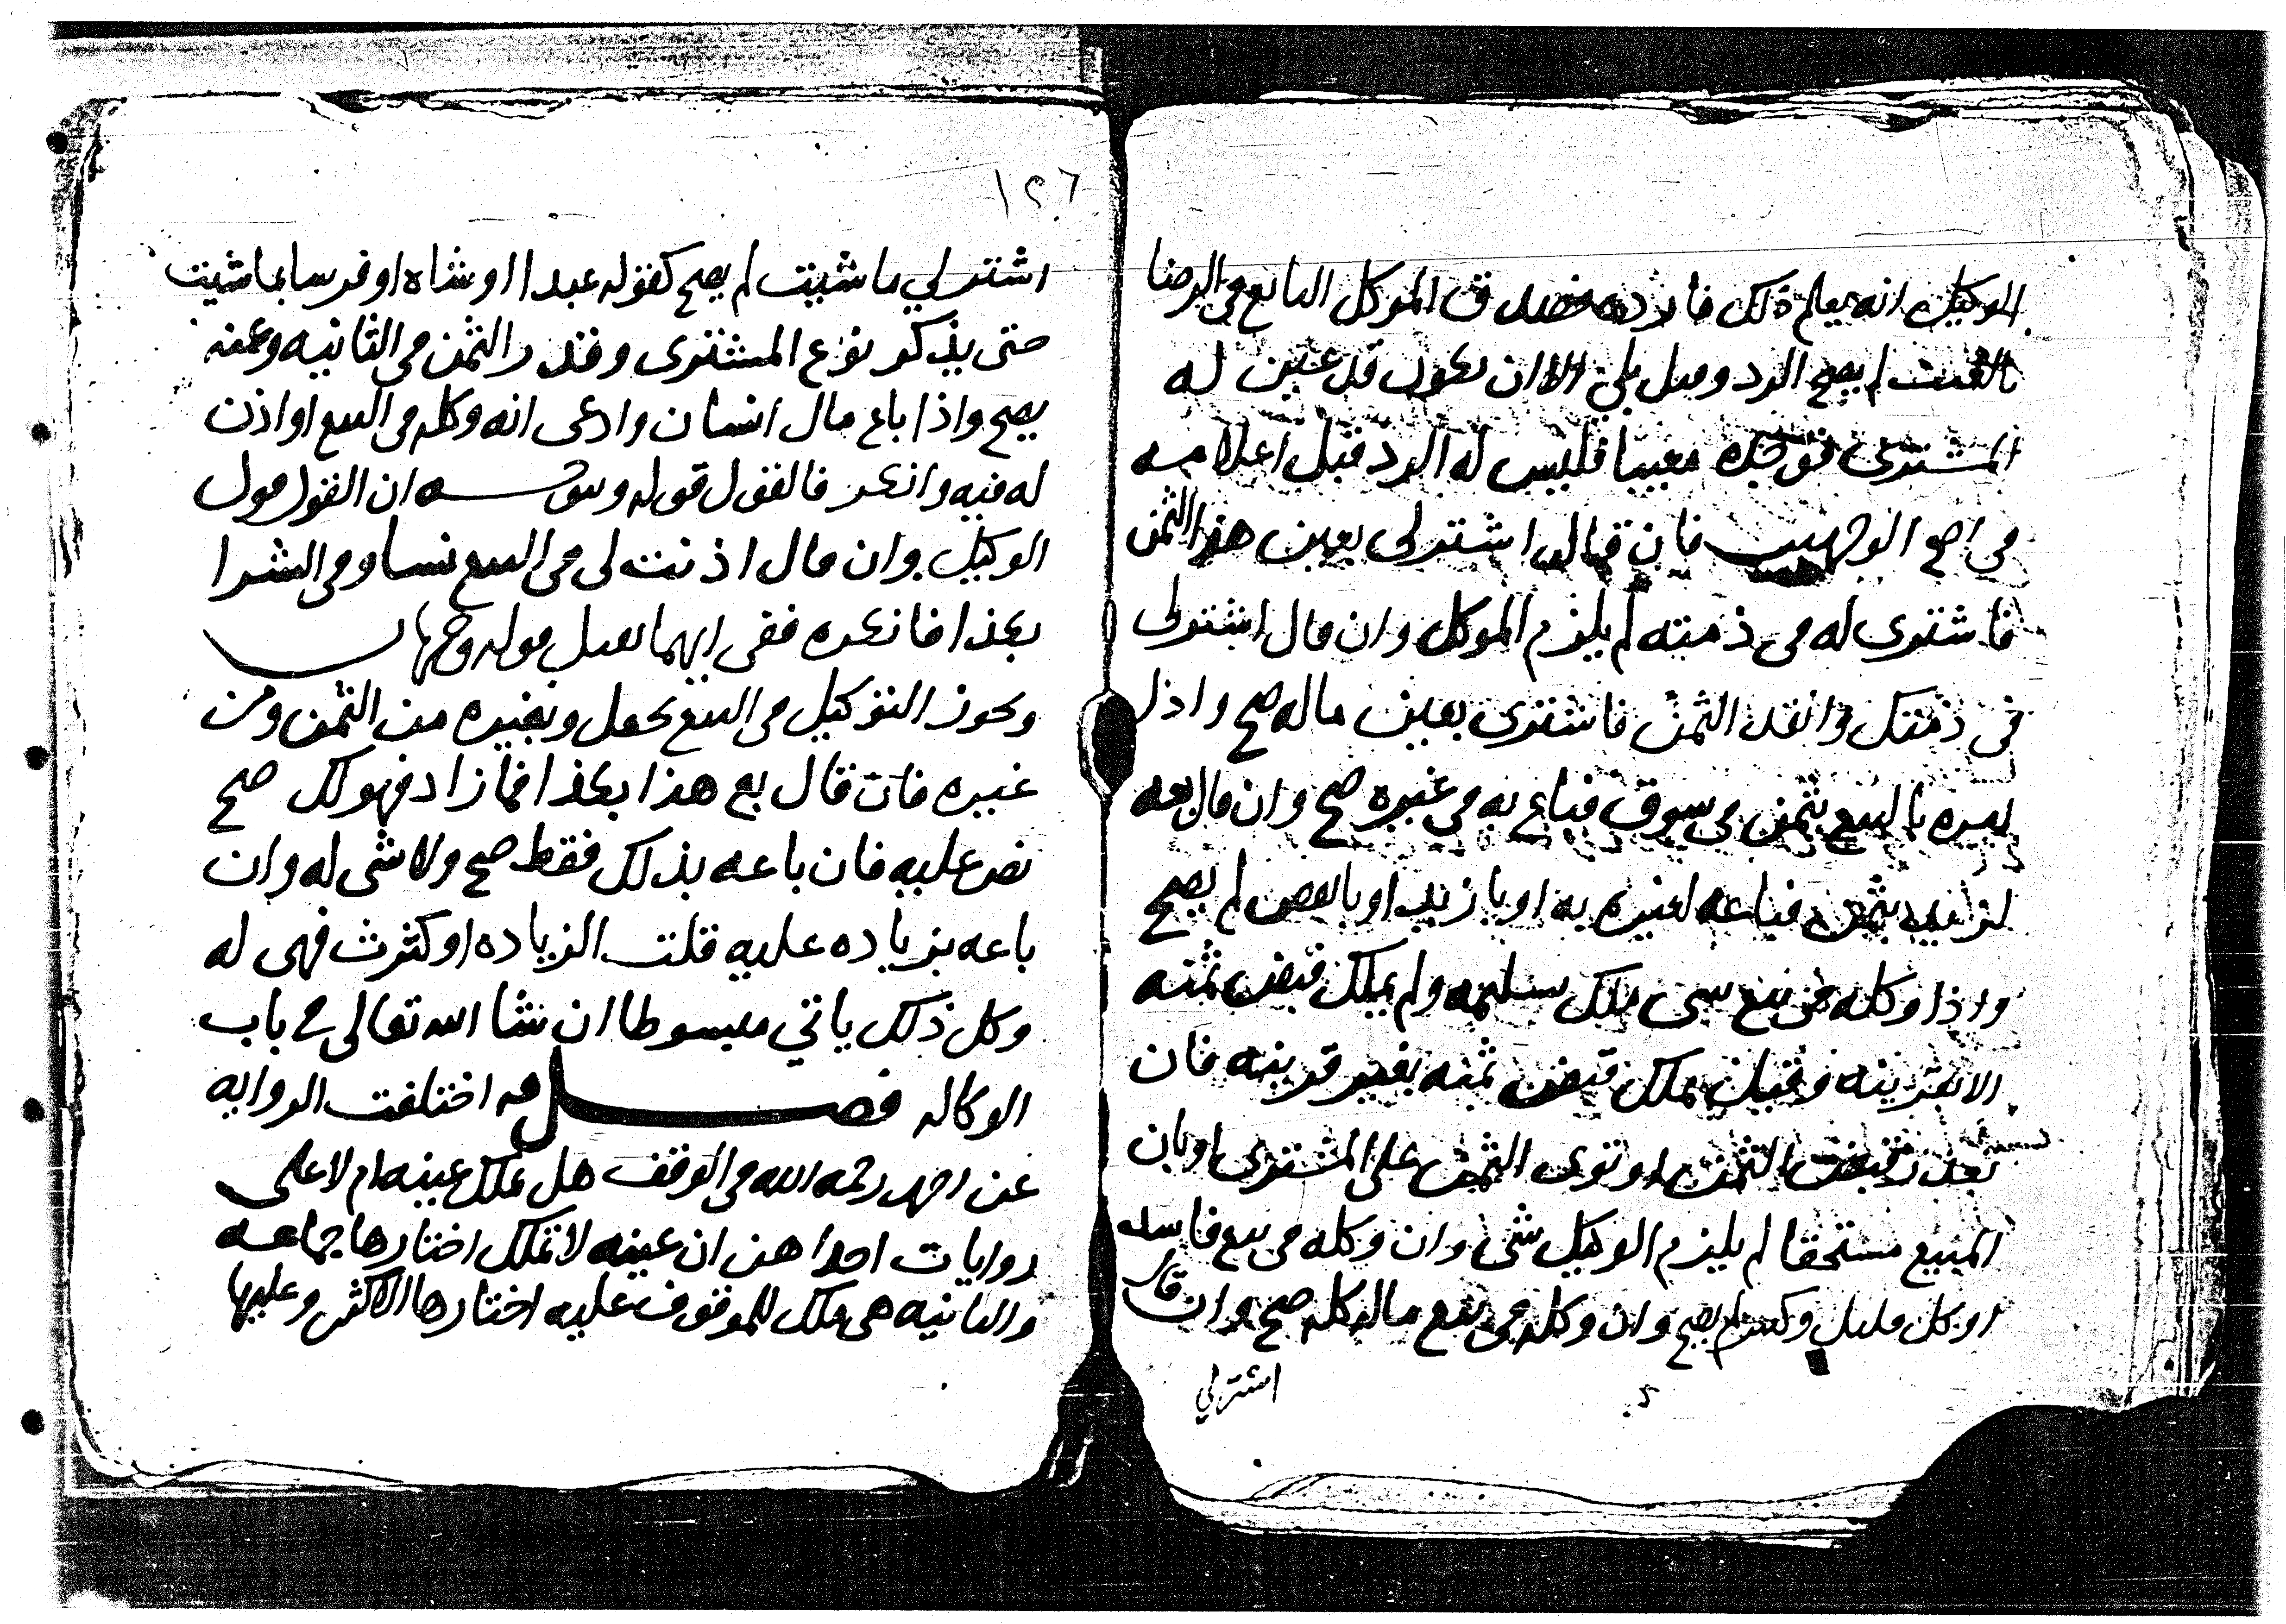 الوكيل انه يعلم ذلك فان رده فصدق الموكل البايع في الرضا
بالعيب لم يصح الرد وقيل بلى الا ان يكون قد عين له
المشترى فوجده معيبا فليس له الرد قبل اعلامه
في اصح الوجهين فان قال اشتر لي بعين هذا الثمن
فاشترى له في ذمته لم يلزم الموكل وان قال اشتر لي
في ذمتك وانقد الثمن فاشترى بعين ماله صح واذا
امره بالبيع بثمن في سوق فباع به في غيره صح وان قال بعه
لزيد بثمن فباعه لغيره به او بازيد او بانقص لم يصح
واذا وكله في بيع شي ملك تسليمه ولم يملك قبض ثمنه
الا بقرينه وقيل يملك قبض ثمنه بغير قرينه فان
تعذر قبض الثمن او توى الثمن على المشترى او بان
المبيع مستحقا لم يلزم الوكيل شى وان وكله في بيع فاسد
او كل قليل وكثير لم يصح وان وكله في بيع ماله كله صح وان قال
اشتر لي
١٢٦
اشتر لي ما شيت لم يصح كقوله عبدا او شاه او فرسا بما شيت
حتى يذكر نوع المشترى وقدر الثمن في الثانيه وعنه
يصح واذا باع مال انسان وادعى انه وكله في البيع او اذن
له فيه وانكر فالقول قوله ان القول قول
الوكيل وان قال اذنت لى في البيع نسا وفي الشرا
بكذا فانكره ففى ايهما يقبل قوله وجهان
ويجوز التوكيل في البيع بجعل وبغيره من الثمن ومن
غيره فان قال بع هذا بكذا فما زاد فهو لك صح
نص عليه فان باعه بذلك فقط صح ولا شى له وان
باعه بزياده عليه قلت الزياده او كثرت فهى له
وكل ذلك ياتي مبسوطا ان شا الله تعالى في باب
الوكاله فصل اختلفت الروايه
عن احمد رحمه الله في الوقف هل تملك عينه ام لا على
روايات احداهن ان عينه لا تملك اختارها جماعه
والثانيه هى ملك للموقوف عليه اختارها الاكثر وعليها